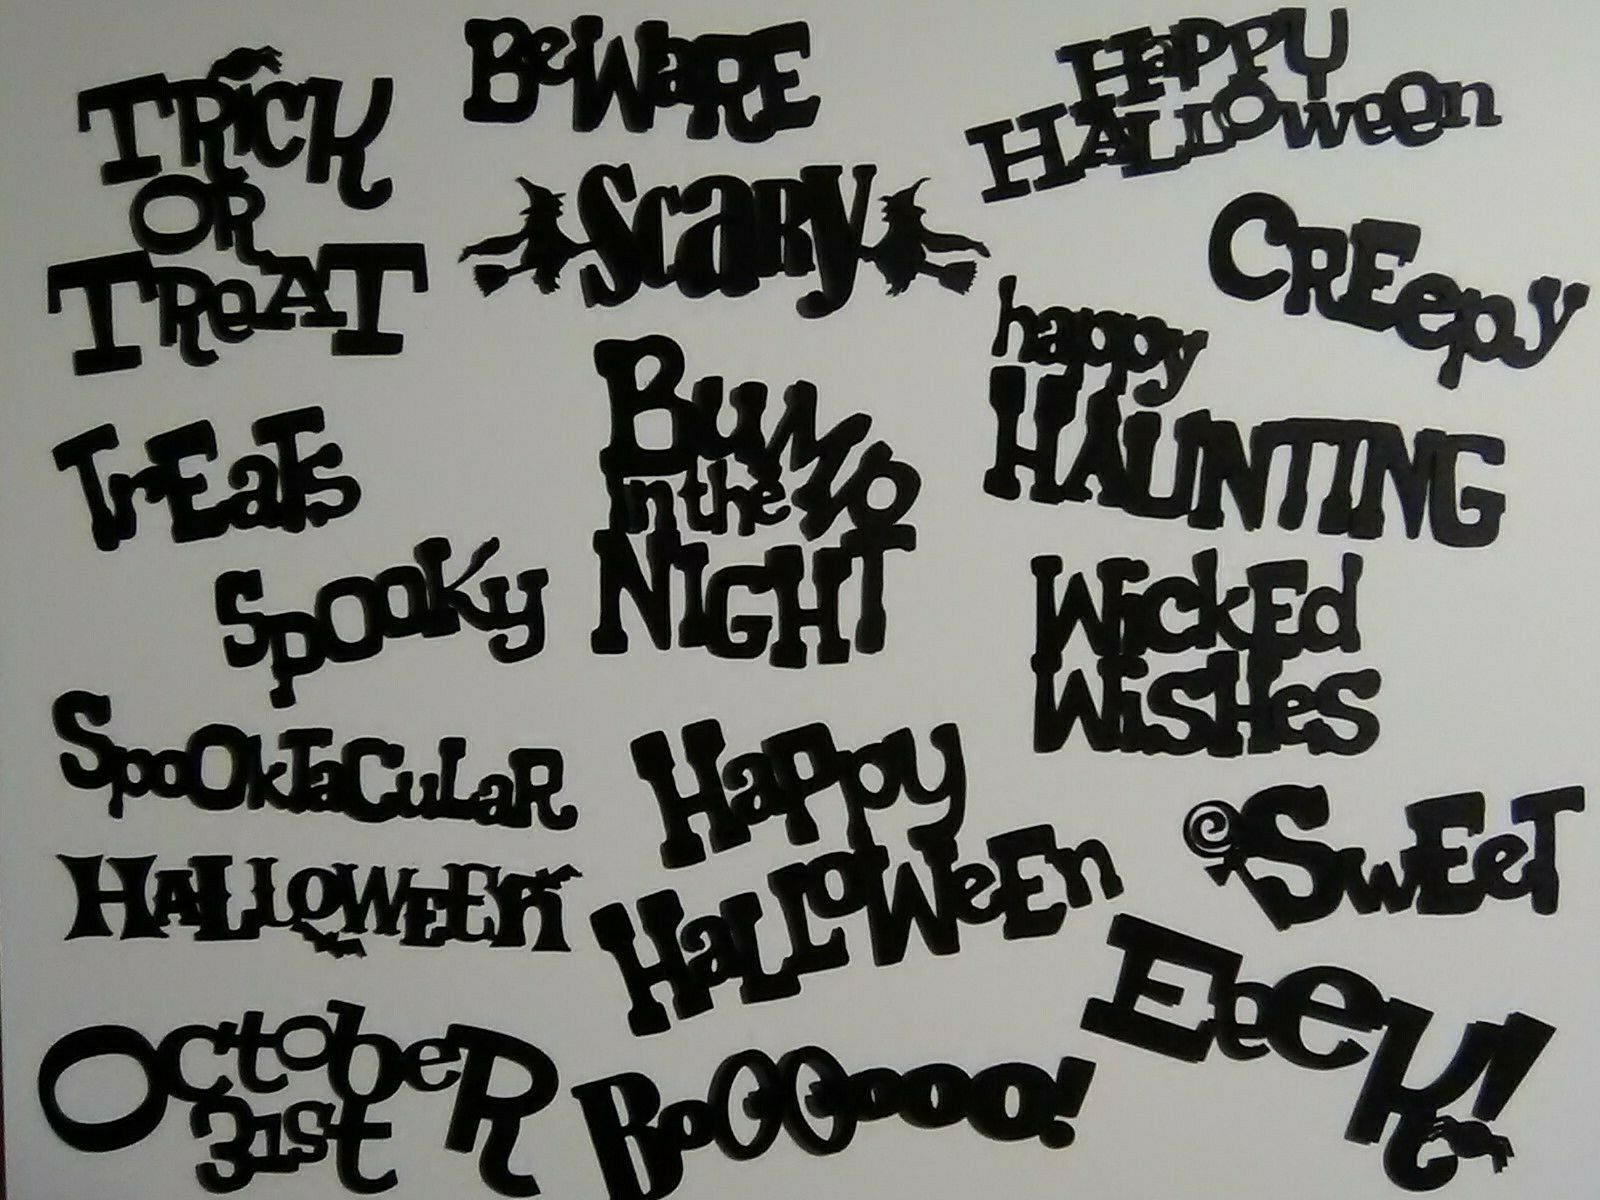 TRiCK
OR
TReAT
BeWaRE
HaPPY
HALLOween
ScaRy
CREepy
happy
HAUNTING
TrEaTs
BuMp
In the
NIGHT
SpOoKy
WickEd
WisHes
SpoOkTaCuLaR
Happy
HaLLoWeEn
SwEeT
HALLOWEEN
EeeK!
OctobeR
31st
BoOOooo!